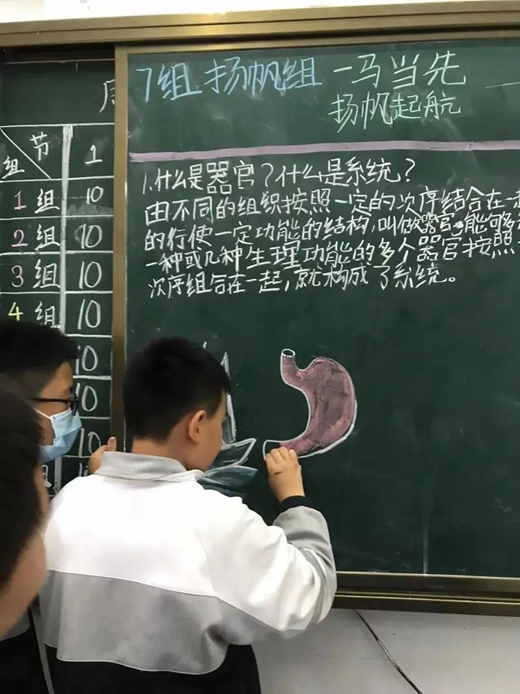 7组 扬帆组 一马当先
扬帆起航
节
组
1
1组 10
2组 10
3组 10
4组 10
10
10
10
1.什么是器官?什么是系统?
由不同的组织按照一定的次序结合在一
的行使一定功能的结构,叫做器官。能够
一种或几种生理功能的多人器官按照
次序组合在一起,就构成了系统。